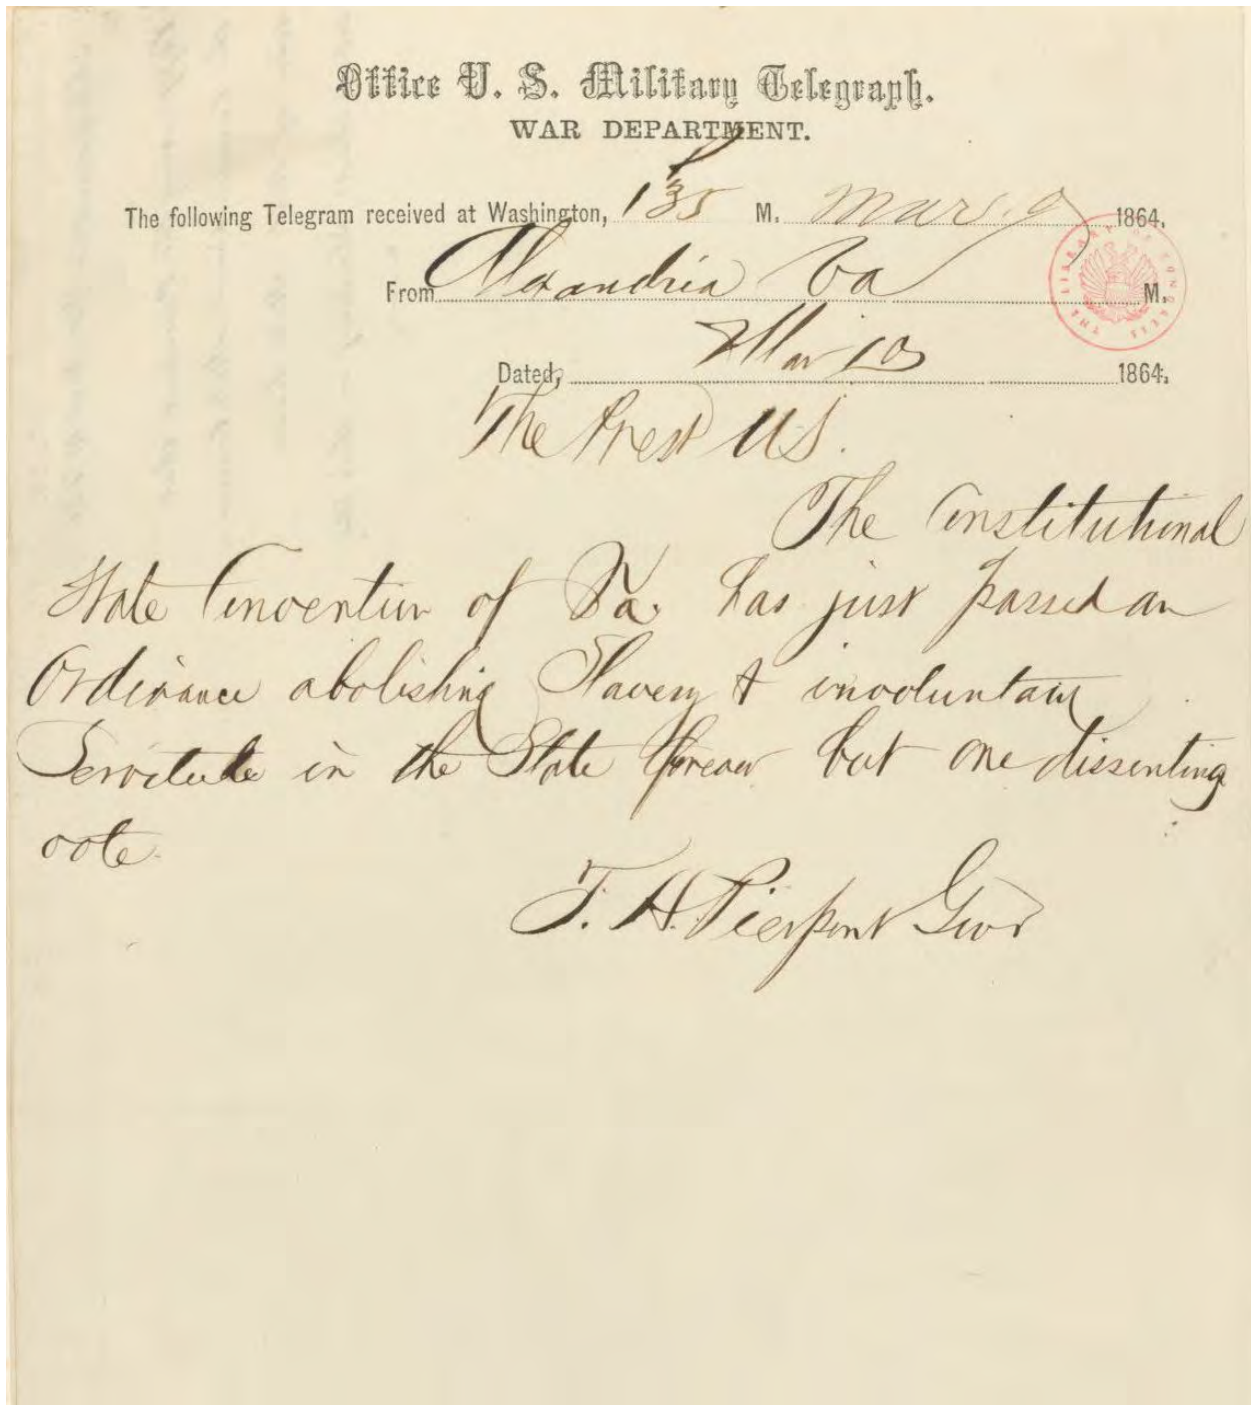 Office U. S. Military Telegraph.
WAR DEPARTMENT.
The following Telegram received at Washington, 1 35 P M. Mar. 9 1864.
From Alexandria Va M.
Dated, Mar 10 1864.
The Prest US.
The Constitutional
State Convention of Va. has just passed an
Ordinance abolishing Slavery & involuntary
Servitude in the State but one dissenting
vote.
F. H. Pierpont Govr
THE LIBRARY OF CONGRESS